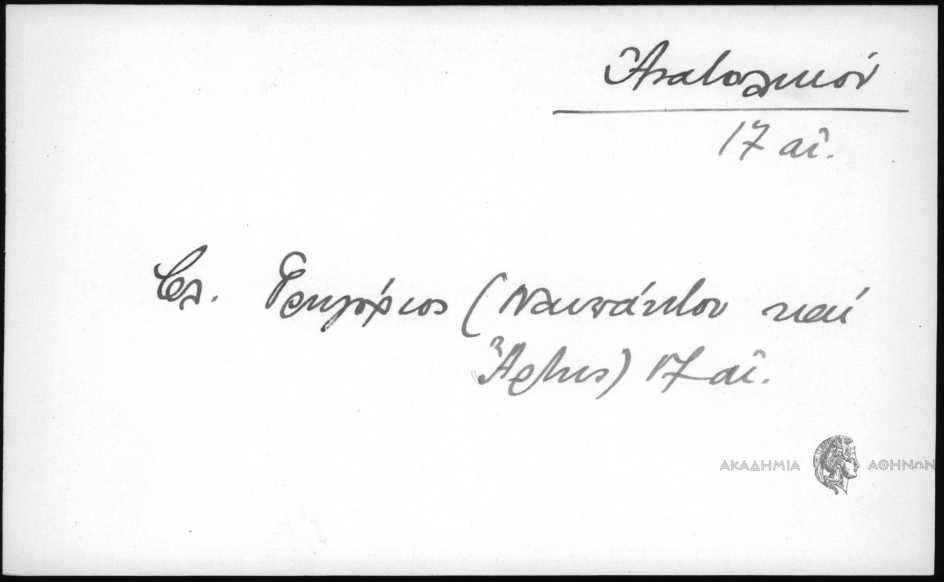 Ἀνατολικόν
17 αἰ.
Βλ. Γρηγόριος (Ναυπάκτου καί
Ἄρτης) 17 αἰ.
ΑΚΑΔΗΜΙΑ ΑΘΗΝΩΝ